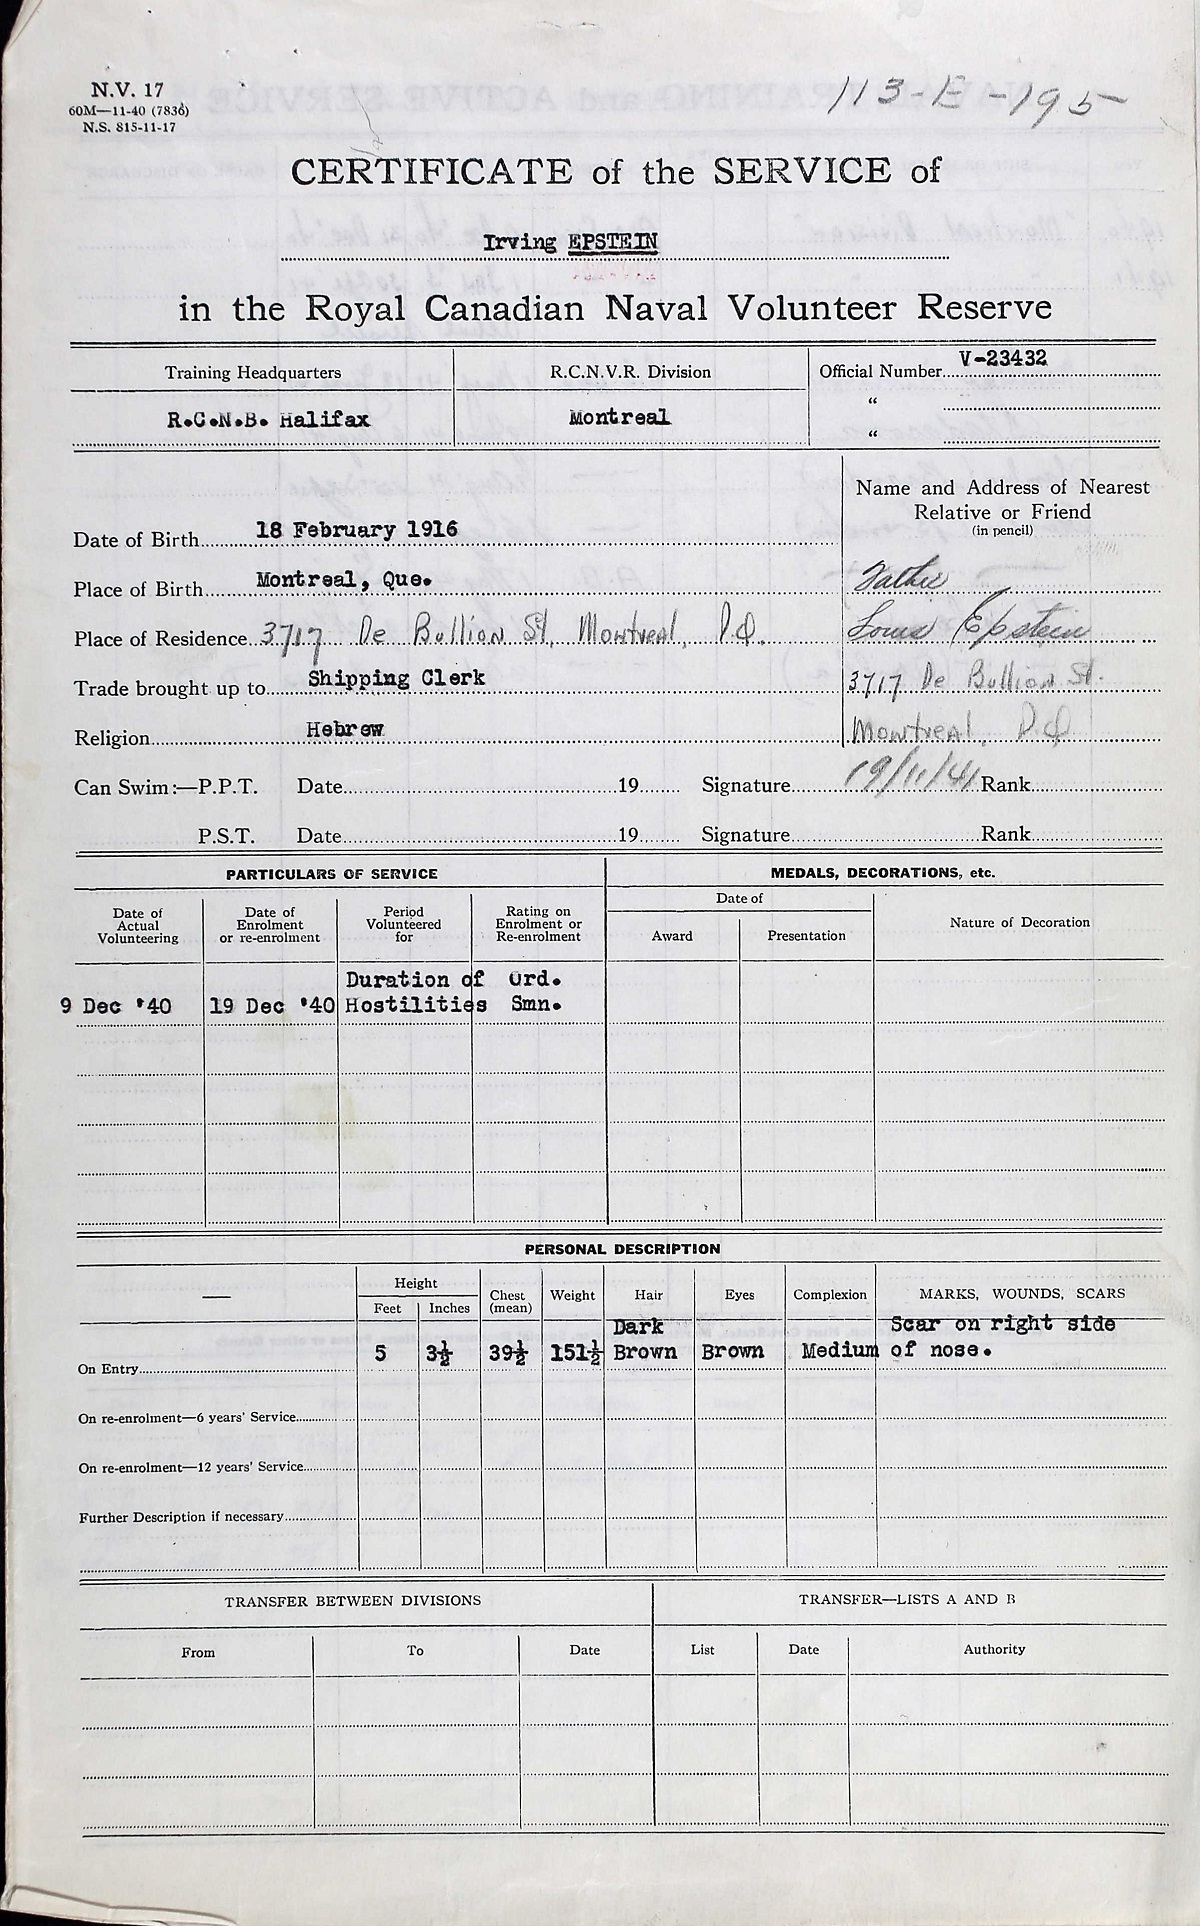 N.V. 17
60M—11-40 (7836)
N.S. 815-11-17
113-E-195
CERTIFICATE of the SERVICE of
Irving EPSTEIN
in the Royal Canadian Naval Volunteer Reserve
Training Headquarters R.C.N.V.R. Division Official Number V-23432
R.C.N.B. Halifax Montreal "
"
Name and Address of Nearest
Relative or Friend
(in pencil)
Date of Birth 18 February 1916
Place of Birth Montreal, Que. Father
Place of Residence 3717 De Bullion St, Montreal, P.Q. Louis Epstein
Trade brought up to Shipping Clerk 3717 De Bullion St.
Religion Hebrew Montreal, P.Q
Can Swim:—P.P.T. Date 19 Signature 19/11/41 Rank
P.S.T. Date 19 Signature Rank
PARTICULARS OF SERVICE MEDALS, DECORATIONS, etc.
Date of Actual Volunteering Date of Enrolment or re-enrolment Period Volunteered for Rating on Enrolment or Re-enrolment Date of Award Presentation Nature of Decoration
Duration of Ord.
9 Dec '40 19 Dec '40 Hostilities Smn.
PERSONAL DESCRIPTION
— Height Feet Inches Chest (mean) Weight Hair Eyes Complexion MARKS, WOUNDS, SCARS
Dark Scar on right side
On Entry 5 3½ 39½ 151½ Brown Brown Medium of nose.
On re-enrolment—6 years' Service
On re-enrolment—12 years' Service
Further Description if necessary
TRANSFER BETWEEN DIVISIONS TRANSFER—LISTS A AND B
From To Date List Date Authority